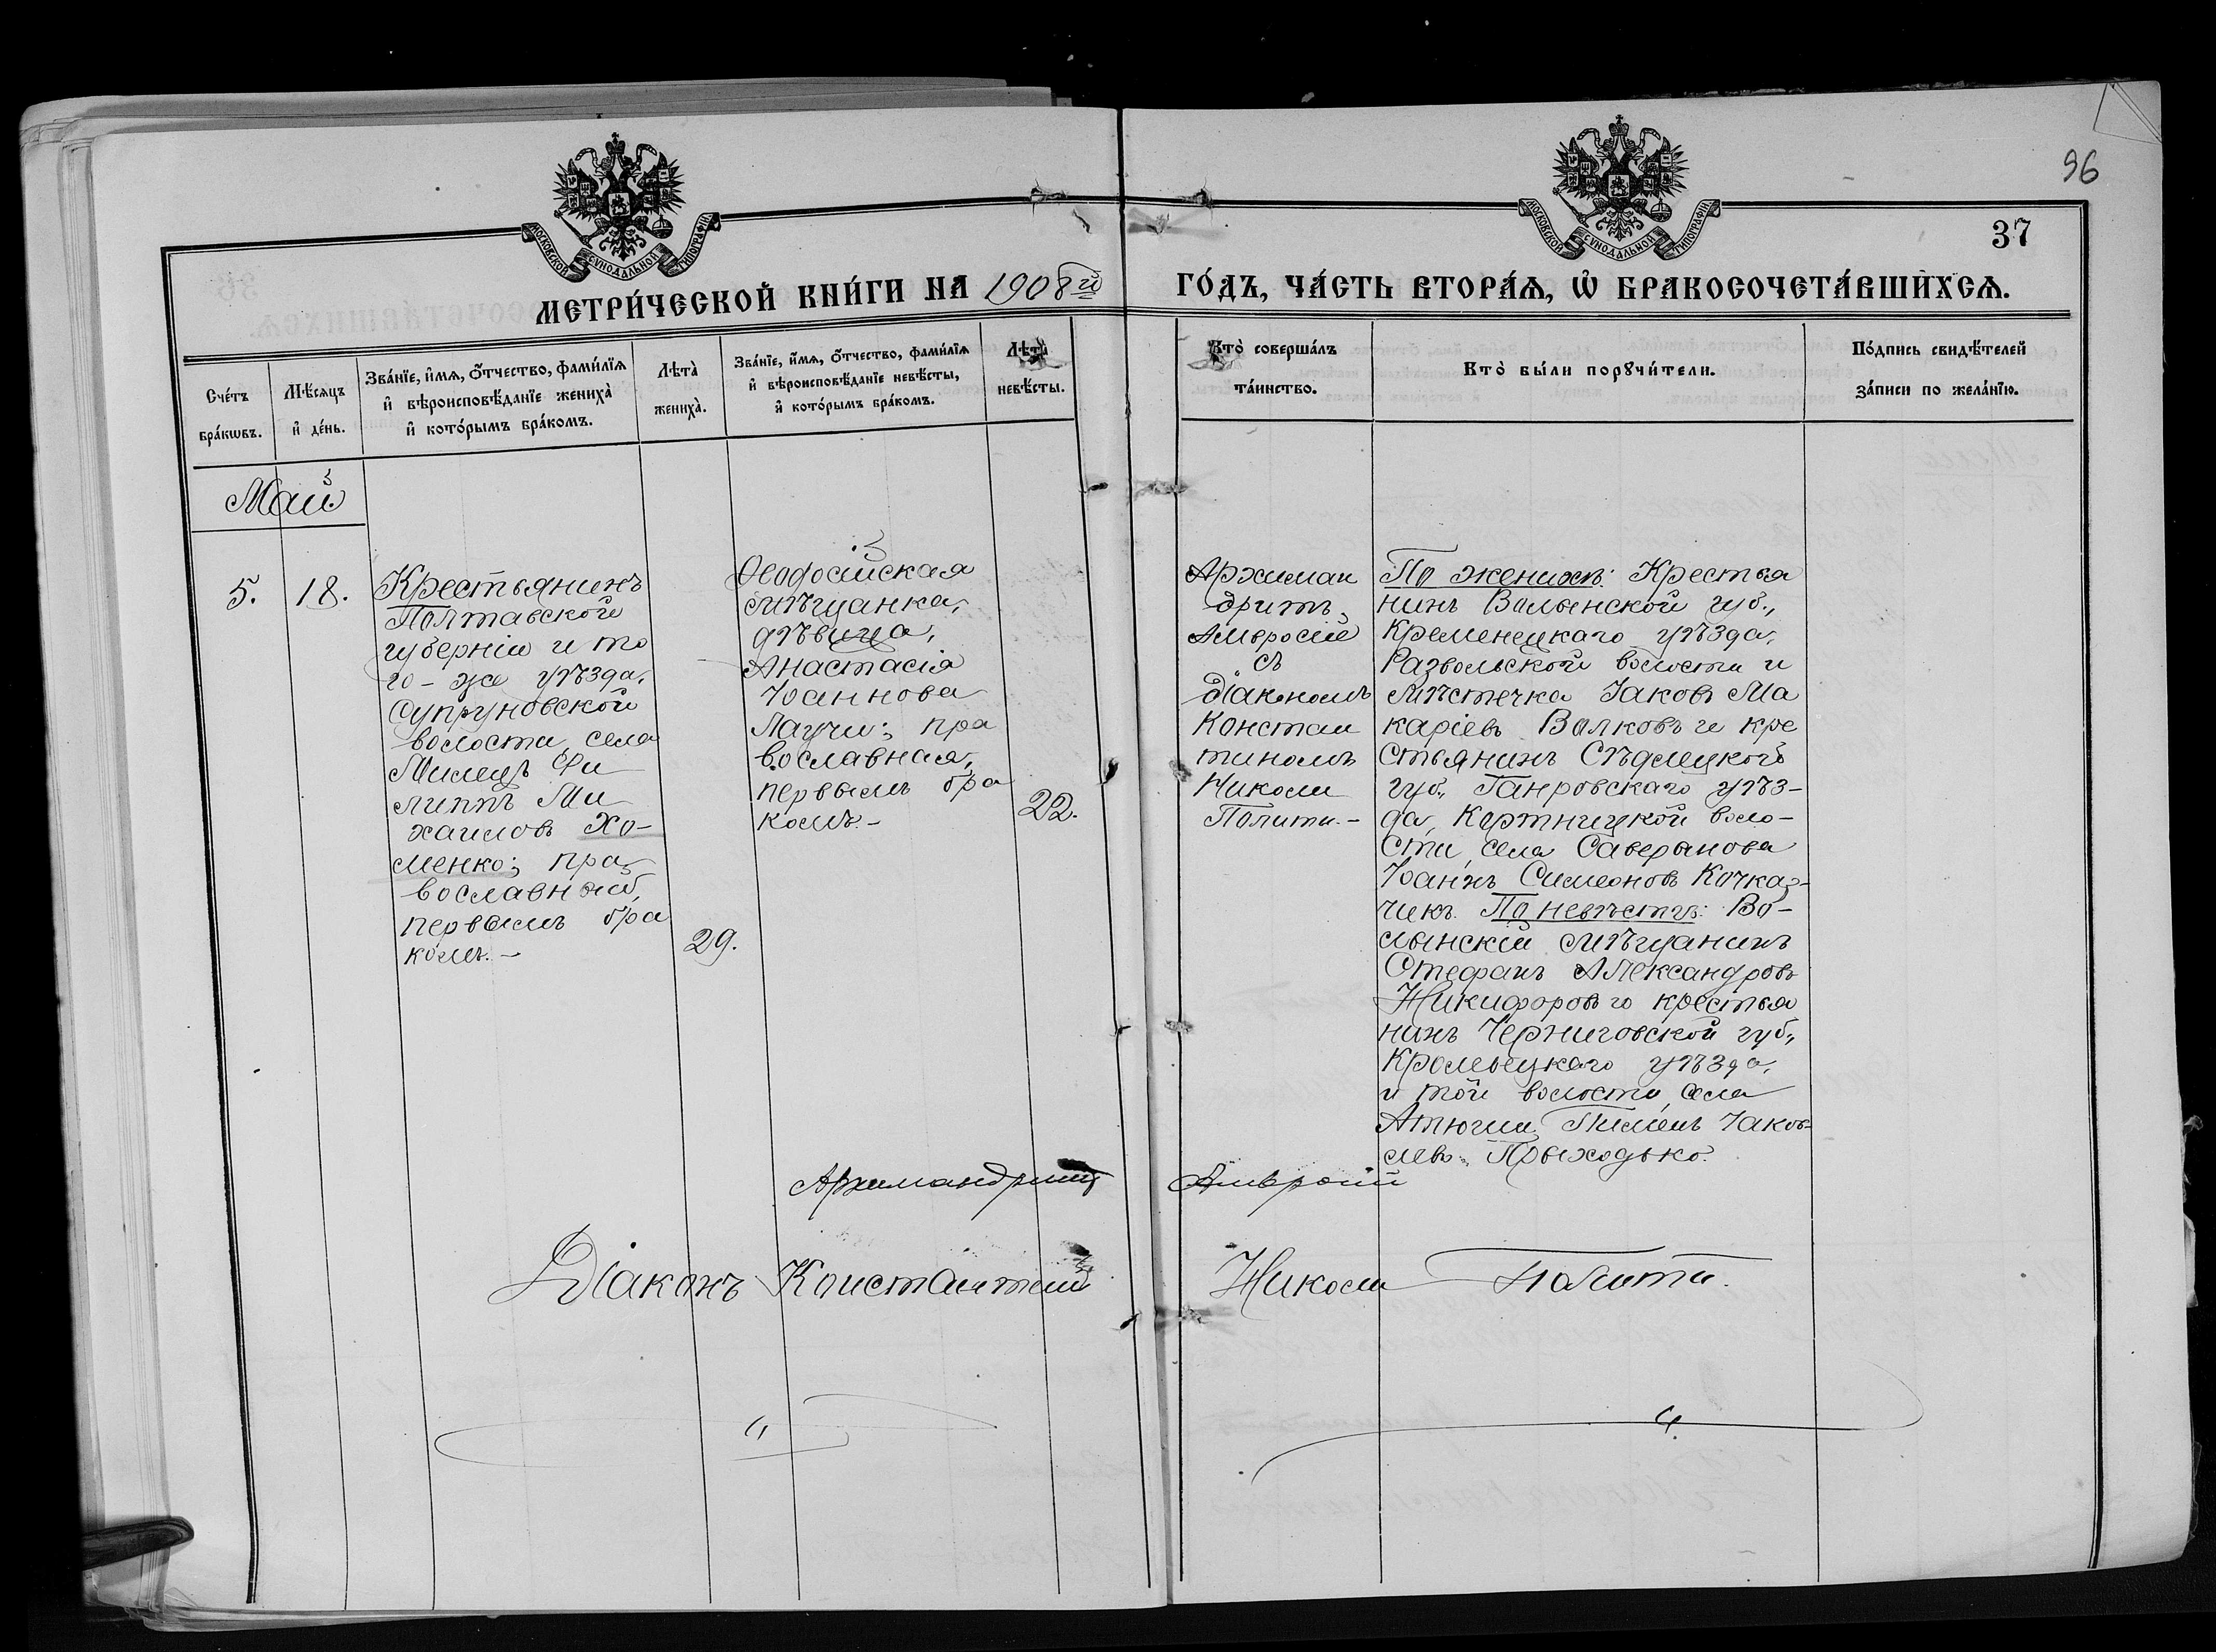 96
37
МОСКОВСКОЙ СУНОДАЛЬНОЙ ТИПОГРАФІИ
МОСКОВСКОЙ СУНОДАЛЬНОЙ ТИПОГРАФІИ
МЕТРИ́ЧЕСКОЙ КНИ́ГИ НА 1908й ГО́ДЪ, ЧА́СТЬ ВТОРА́Ѧ, Ѡ҆ БРАКОСОЧЕТА́ВШИХСѦ.
Сче́тъ
бра́кѡвъ.
Мѣ́сѧцъ
и҆ де́нь.
Зва́нїе, и҆́мѧ, ѻ҆́тчество, фами́лїѧ
и҆ вѣроисповѣ́данїе жениха̀
и҆ кото́рымъ бра́комъ.
Лѣта̀
жениха̀.
Зва́нїе, и҆́мѧ, ѻ҆́тчество, фами́лїѧ
и҆ вѣроисповѣ́данїе невѣ́сты,
и҆ кото́рымъ бра́комъ.
Лѣта̀
невѣ́сты.
Кто̀ соверша́лъ
та́инство.
Кто̀ бы́ли порꙋчи́тели.
По́дпись свидѣ́телей
за́писи по жела́нїю.
Май
5.
18.
Крестьянинъ
Полтавской
губерніи и то
го-же уѣзда,
Супруновской
волости, села
Милецъ Фи
липпъ Ми
хаиловъ Хо-
менко; пра
вославный,
первымъ бра
комъ.-
29.
Ѳеодосійская
мѣщанка,
дѣвица,
Анастасія
Іоаннова
Лаучи; пра
вославная,
первымъ бра
комъ.-
22.
Архиман
дритъ
Амвросій
съ
діакономъ
Констан
тиномъ
Николи
Полити.-
По женихѣ: Крестья
нинъ Волынской губ.,
Кременецкаго уѣзда,
Развольской волости и
мѣстечка Іаковъ Ма
каріевъ Волковъ и кре
стьянинъ Сѣдлецкой
губ., Ганровскаго уѣз-
да, Кортницкой воло-
сти, села Саверынова
Іоаннъ Симеоновъ Кочказ-
чикъ. По невѣстѣ: Во-
лынскій мѣщанинъ
Стефанъ Александровъ
Никифоровъ и крестья
нинъ Черниговской губ.,
Кролевецкаго уѣзда,
и той волости, села
Атюши Пименъ Іаков-
левъ Прыходько.
Архимандритъ Амвросій
Діаконъ Константинъ Николи Полити.